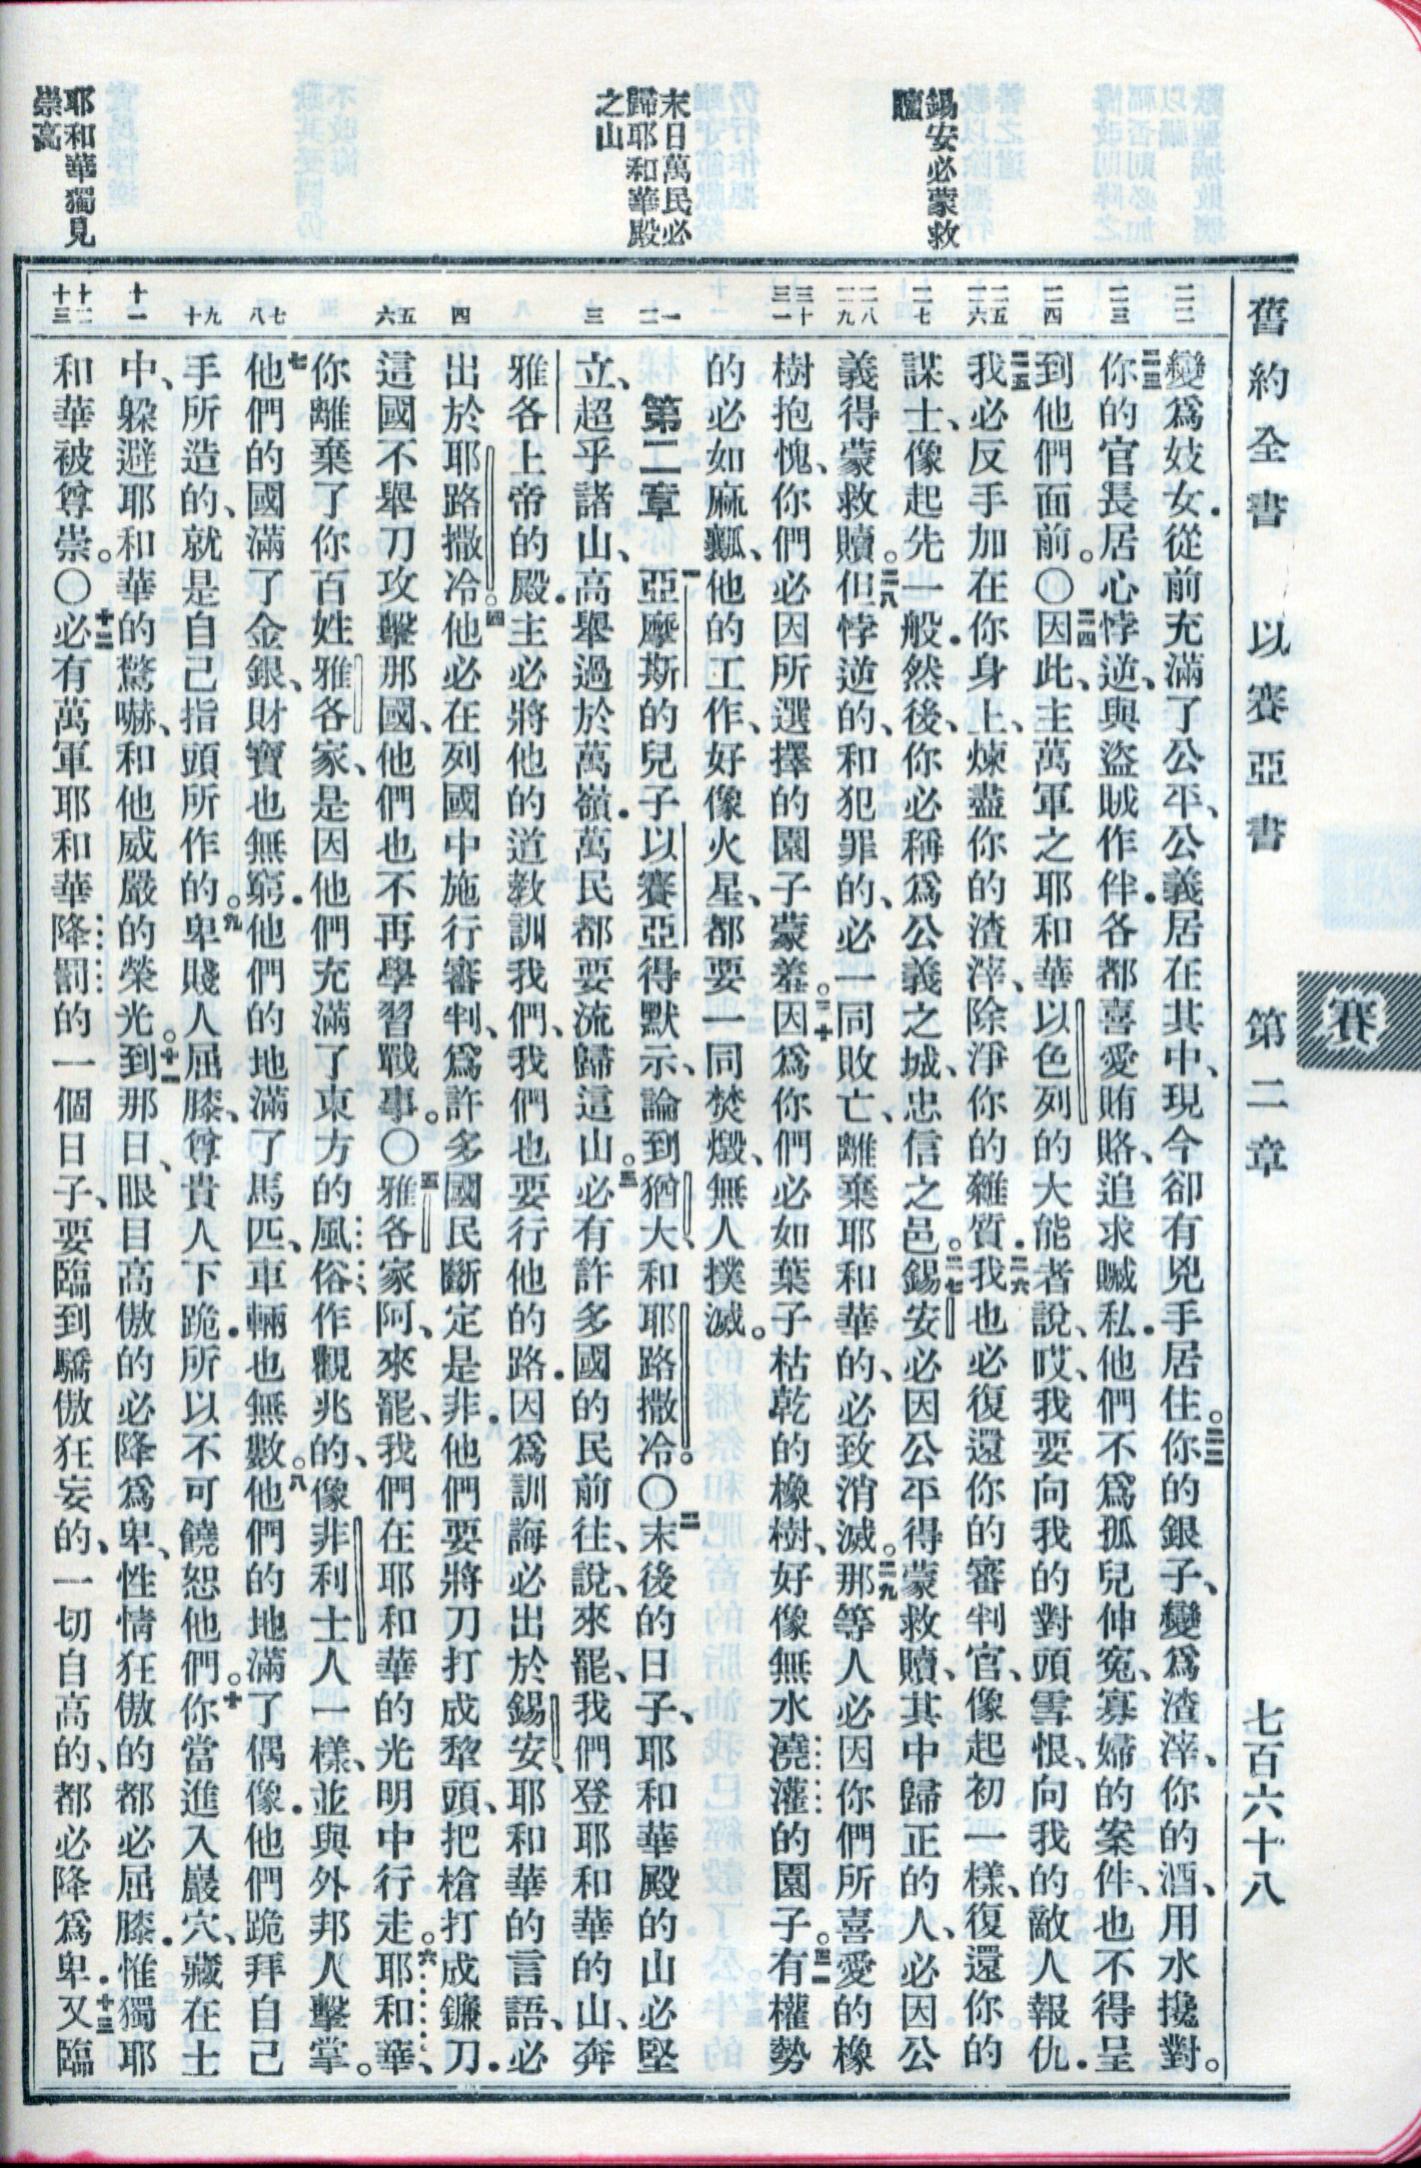 舊約全書 以賽亞書 第二章 七百六十八
賽
錫安必蒙救
贖
末日萬民必
歸耶和華殿
之山
耶和華獨見
崇高
二二
二三
二四
二五 二六
二七
二八 二九
三十 三一
一 二
三
四
五 六
七 八
九 十
十一
十二 十三
變爲妓女從前充滿了公平、公義居在其中、現今卻有兇手居住。二二你的銀子、變爲渣滓、你的酒、用水攙對。
二三你的官長居心悖逆、與盜賊作伴各都喜愛賄賂、追求贓私他們不爲孤兒伸寃、寡婦的案件、也不得呈
到他們面前。〇二四因此、主萬軍之耶和華以色列的大能者說、哎、我要向我的對頭雪恨、向我的敵人報仇
二五我必反手加在你身上、煉盡你的渣滓、除淨你的雜質二六我也必復還你的審判官、像起初一樣、復還你的
謀士、像起先一般然後、你必稱爲公義之城、忠信之邑。二七錫安必因公平得蒙救贖、其中歸正的人、必因公
義得蒙救贖。二八但悖逆的、和犯罪的、必一同敗亡、離棄耶和華的、必致消滅。二九那等人必因你們所喜愛的橡
樹抱愧、你們必因所選擇的園子蒙羞。三十因爲你們必如葉子枯乾的橡樹、好像無水澆灌的園子。三一有權勢
的必如麻瓤、他的工作、好像火星、都要一同焚燬、無人撲滅。
第二章 一亞摩斯的兒子以賽亞得默示、論到猶大、和耶路撒冷。〇二末後的日子、耶和華殿的山必堅
立、超乎諸山、高舉過於萬嶺萬民都要流歸這山。三必有許多國的民前往、說、來罷、我們登耶和華的山、奔
雅各上帝的殿主必將他的道教訓我們、我們也要行他的路因爲訓誨必出於錫安、耶和華的言語、必
出於耶路撒冷。四他必在列國中施行審判、爲許多國民斷定是非他們要將刀打成犂頭、把槍打成鐮刀
這國不舉刀攻擊那國、他們也不再學習戰事。〇五雅各家阿、來罷、我們在耶和華的光明中行走。六耶和華、
你離棄了你百姓雅各家、是因他們充滿了東方的風俗作觀兆的、像非利士人一樣、並與外邦人擊掌。
七他們的國滿了金銀、財寶也無窮他們的地滿了馬匹、車輛也無數。八他們的地滿了偶像他們跪拜自己
手所造的、就是自己指頭所作的。九卑賤人屈膝、尊貴人下跪所以不可饒恕他們。十你當進入巖穴、藏在土
中、躲避耶和華的驚嚇、和他威嚴的榮光。十一到那日、眼目高傲的必降爲卑、性情狂傲的都必屈膝惟獨耶
和華被尊崇。〇十二必有萬軍耶和華降罰的一個日子、要臨到驕傲狂妄的、一切自高的、都必降爲卑十三又臨